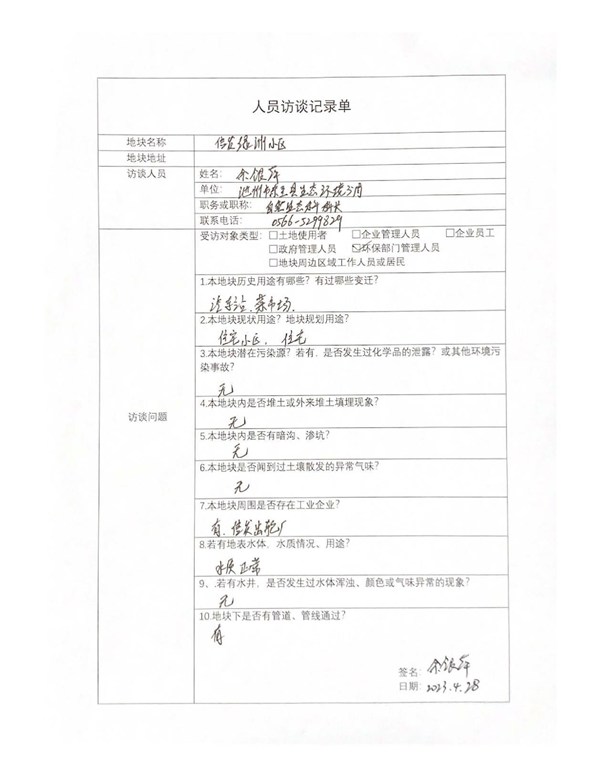 人员访谈记录单
地块名称 绿洲小区
地块地址
访谈人员
姓名：余银萍
单位：池州市东至县生态环境分局
职务或职称：自然生态科科长
联系电话：0566-5299829
访谈问题
受访对象类型：□土地使用者 □企业管理人员 □企业员工
□政府管理人员 ☑环保部门管理人员
□地块周边区域工作人员或居民
1.本地块历史用途有哪些？有过哪些变迁？
菜市场
2.本地块现状用途？地块规划用途？
住宅小区，住宅
3.本地块潜在污染源？若有，是否发生过化学品的泄露？或其他环境污
染事故？
无
4.本地块内是否堆土或外来堆土填埋现象？
无
5.本地块内是否有暗沟、渗坑？
无
6.本地块是否闻到过土壤散发的异常气味？
无
7.本地块周围是否存在工业企业？
有
8.若有地表水体，水质情况、用途？
水质正常
9、.若有水井，是否发生过水体浑浊、颜色或气味异常的现象？
无
10.地块下是否有管道、管线通过？
有
签名：余银萍
日期：2023.4.28